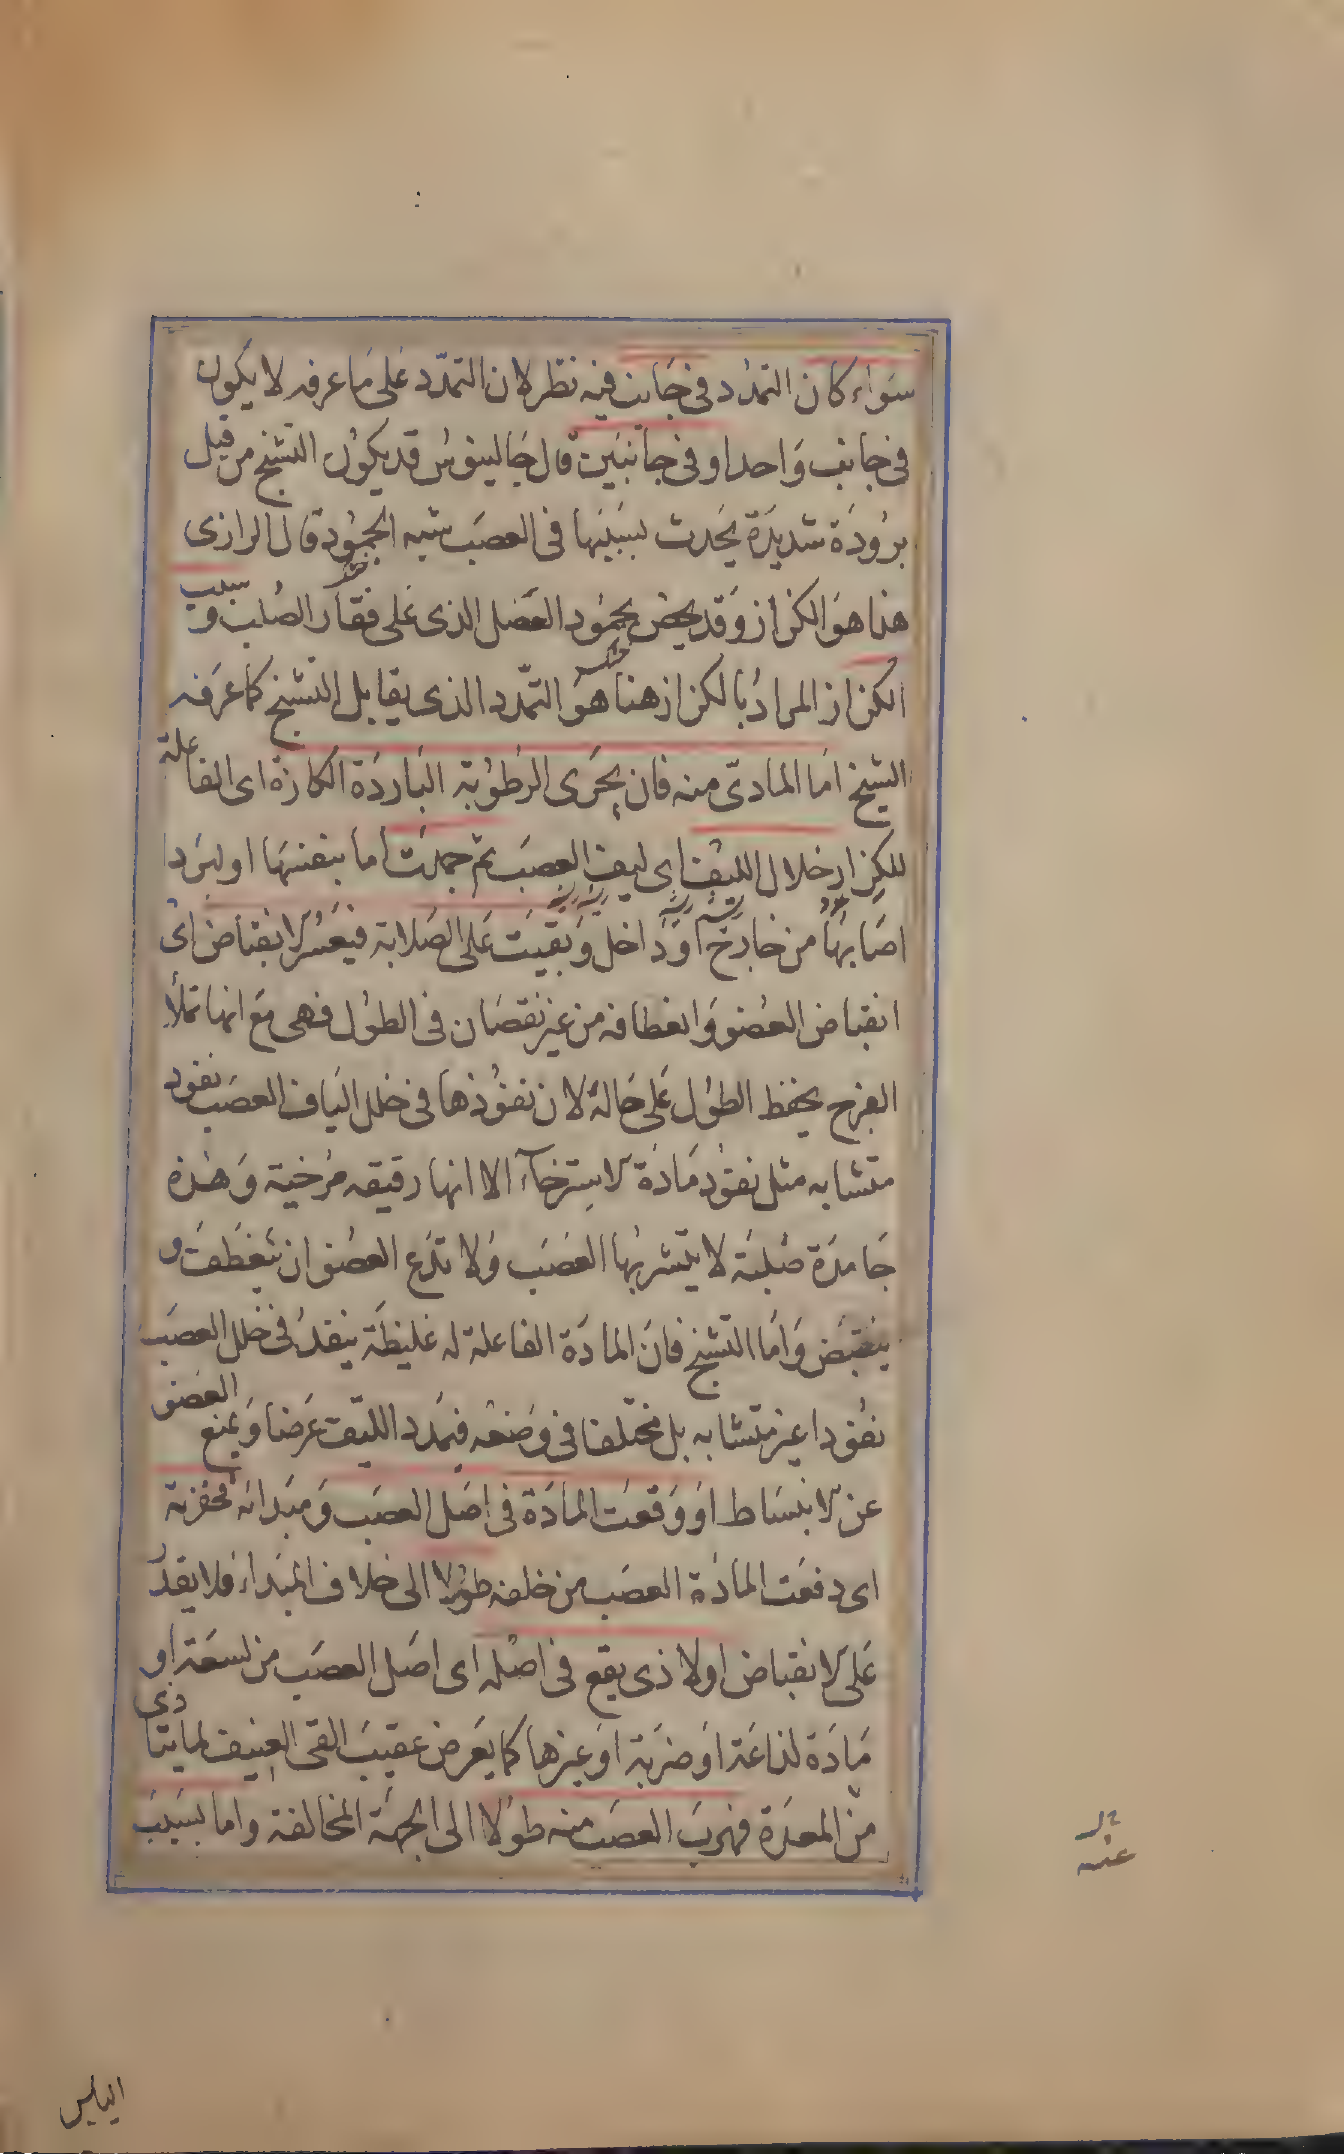 سواء كان التمدد فى جانب فيه نظر لان التمدد على ما عرفه لا يكون
فى جانب واحد او فى جانبين قال جالينوس قد يكون التشنج من قبل
برودة شديدة يحدث بسببها فى العصب شبه الجمود قال الرازى
هذا هو الكزاز وقد يخص بجمود العضل الذى على فقار الصلب و سبب
الكزاز المراد بالكزاز هنا هو التمدد الذى يقابل التشنج كما عرفه
الشيخ اما المادى منه فان يجرى الرطوبة الباردة الكازة اى الفاعلة
للكزاز خلال الليف اى ليف العصب ثم جمدت اما بنفسها او لبرد
اصابها من خارج او داخل وبقيت على الصلابة فيعسر الانقباض اى
انقباض العضو وانعطافه من غير نقصان فى الطول فهى مع انها تملأ
الفرج يحفظ الطول على حالة لان نفوذها فى خلل الياف العصب نفوذ
متشابه مثل نفوذ مادة الاسترخاء الا انها رقيقه مرخية وهذه
جامدة صلبة لا يتشربها العصب ولا تدع العضو ان ينعطف و
ينقبض واما التشنج فان المادة الفاعلة له غليظة ينفذ فى خلل العصب
نفوذا غير متشابه بل مختلفا فى وضعه فيمدد الليف عرضا ويمنع العضو
عن الانبساط او وقعت المادة فى اصل العصب ومبدائه فحفزته
اى دفعت المادة العصب من خلفه طولا الى خلاف المبداء فلا يقدر
على الانقباض اولا ذى يقع فى اصله اى اصل العصب من لسعة او
مادة لذاعة او ضربة او غيرها كما يعرض عقيب القى العنيف لما يتاذى
من المعدة فهرب العصب منه طولا الى الجهة المخالفة واما بسبب
اليابس